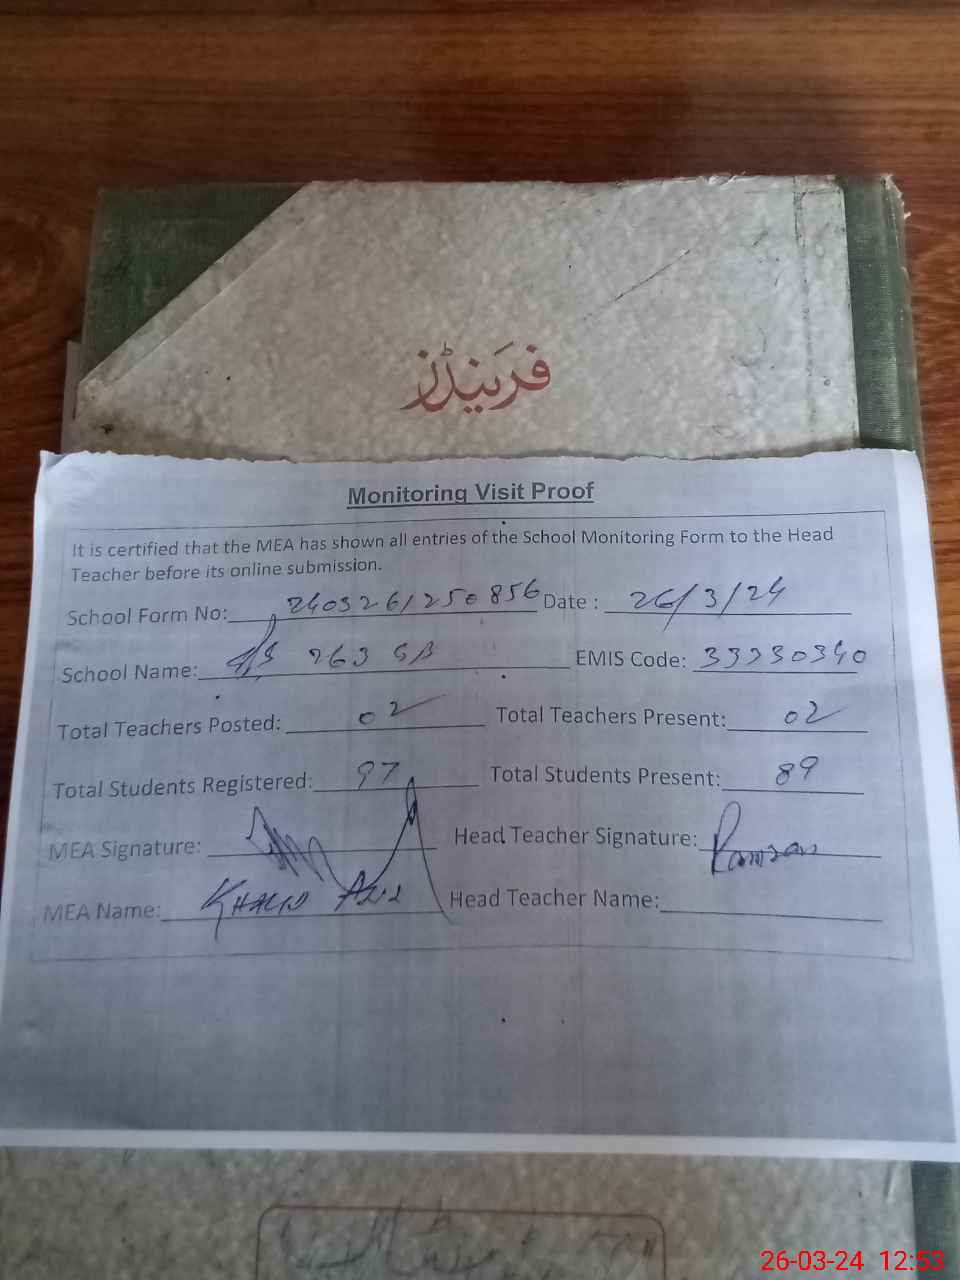 فرینڈز
Monitoring Visit Proof
It is certified that the MEA has shown all entries of the School Monitoring Form to the Head
Teacher before its online submission.
School Form No: 240326/250856 Date : 26/3/24
School Name: 263 GB EMIS Code: 33230340
Total Teachers Posted: 02 Total Teachers Present: 02
Total Students Registered: 97 Total Students Present: 89
MEA Signature: Head Teacher Signature: Ramzan
MEA Name: KHALID AZIZ Head Teacher Name:
26-03-24 12:53